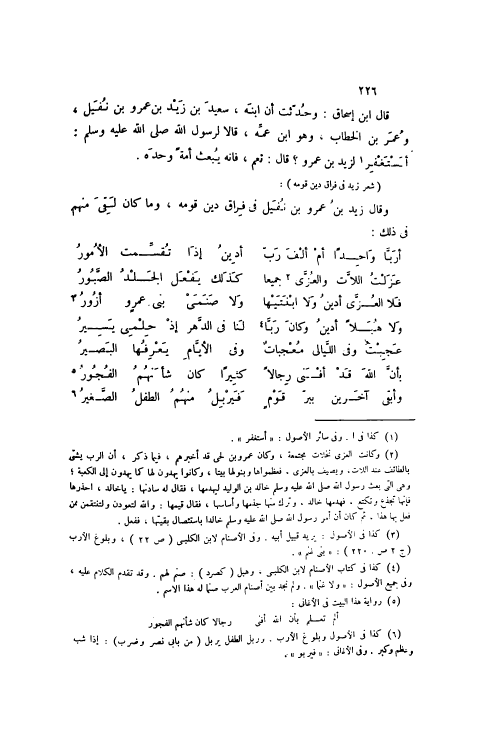 ٢٢٦
قال ابن إسحاق : وحُدثت أن ابنه ، سعيدَ بن زَيْد بن عمرو بن نُفَيل ،
وعُمَر بن الخطاب ، وهو ابن عمِّه ، قالا لرسول الله صلى الله عليه وسلم :
أَسْتَغْفِر١ لزيد بن عمرو ؟ قال : نعم ، فانه يُبعث أمةً وحدَه .
( شعر زيد فى فراق دين قومه ) :
وقال زيد بن عمرو بن نفيل فى فِراق دين قومه ، وما كان لَقِىَ منهم
فى ذلك :
أرَبًّا وَاحِدًا أمْ ألْفَ رَبّ أدِينُ إذَا تُقُسِّمت الأمُورُ
عَزَلْتُ اللاَّتَ والعُزَّى ٢ جميعا كذلك يَفْعل الجَلْدُ الصَّبُورُ
فلا العُزَّى أدينُ ولا ابْنَتَيْها ولا صَنَمَىْ بنى عمرٍو أزُورُ ٣
ولا هُبَلاً أدينُ وكانَ رَبًّا٤ لنا فى الدَّهر إذْ حِلْمِى يَسِيرُ
عَجِبْتُ وفى اللَّيالى مُعْجِبَاتٌ وفى الأيَّامِ يَعْرِفُها البَصيرُ
بأنَّ اللهَ قَدْ أفْنَى رِجالاً كَثيرًا كان شأنَهُمُ الفُجُورُ ٥
وأبْقَى آخَرِين ببِرّ قَوْمٍ فَيَرْبِلُ منهُمُ الطفلُ الصَّغيرُ ٦
(١) كذا فى ا . وفى سائر الأصول : « أستغفر » .
(٢) وكانت العزى نخلات مجتمعة ، وكان عمرو بن لحى قد أخبرهم ، فيما ذكر ، أن الرب يشتى
بالطائف عند اللات ، ويصيف بالعزى . فعظموها وبنوا لها بيتا ، وكانوا يهدون لها كما يهدون إلى الكعبة ؛
وهى التى بعث رسول الله صلى الله عليه وسلم خالد بن الوليد ليهدمها ، فقال له سادنها : ياخالد ، احذرها
فإنها تجذع وتكنع . فهدمها خالد . وترك منها جذمها وأساسها ، فقال قيمها : والله لتعودن ولتنتقمن ممن
فعل بها هذا . ثم كان أن أمر رسول الله صلى الله عليه وسلم خالدا باستئصال بقيتها ، ففعل .
(٣) كذا فى الأصول : يريد قبيل أبيه . وفى الأصنام لابن الكلبى ( ص ٢٢ ) ، وبلوغ الأرب
( ج ٢ ص ٢٢٠ ) : « بنى غنم » .
(٤) كذا فى كتاب الأصنام لابن الكلبى . وهبل ( كصرد ) : صنم لهم . وقد تقدم الكلام عليه ،
وفى جميع الأصول : « ولا غنما » . ولم نجد بين أصنام العرب صنما له هذا الاسم .
(٥) رواية هذا البيت فى الأغانى :
ألم تعلم بأن الله أفنى رجالا كان شأنهم الفجور
(٦) كذا فى الأصول وبلوغ الأرب . وربل الطفل يربل ( من بابى نصر وضرب ) : إذا شب
وعظم وكبر . وفى الأغانى : « فيربو » .